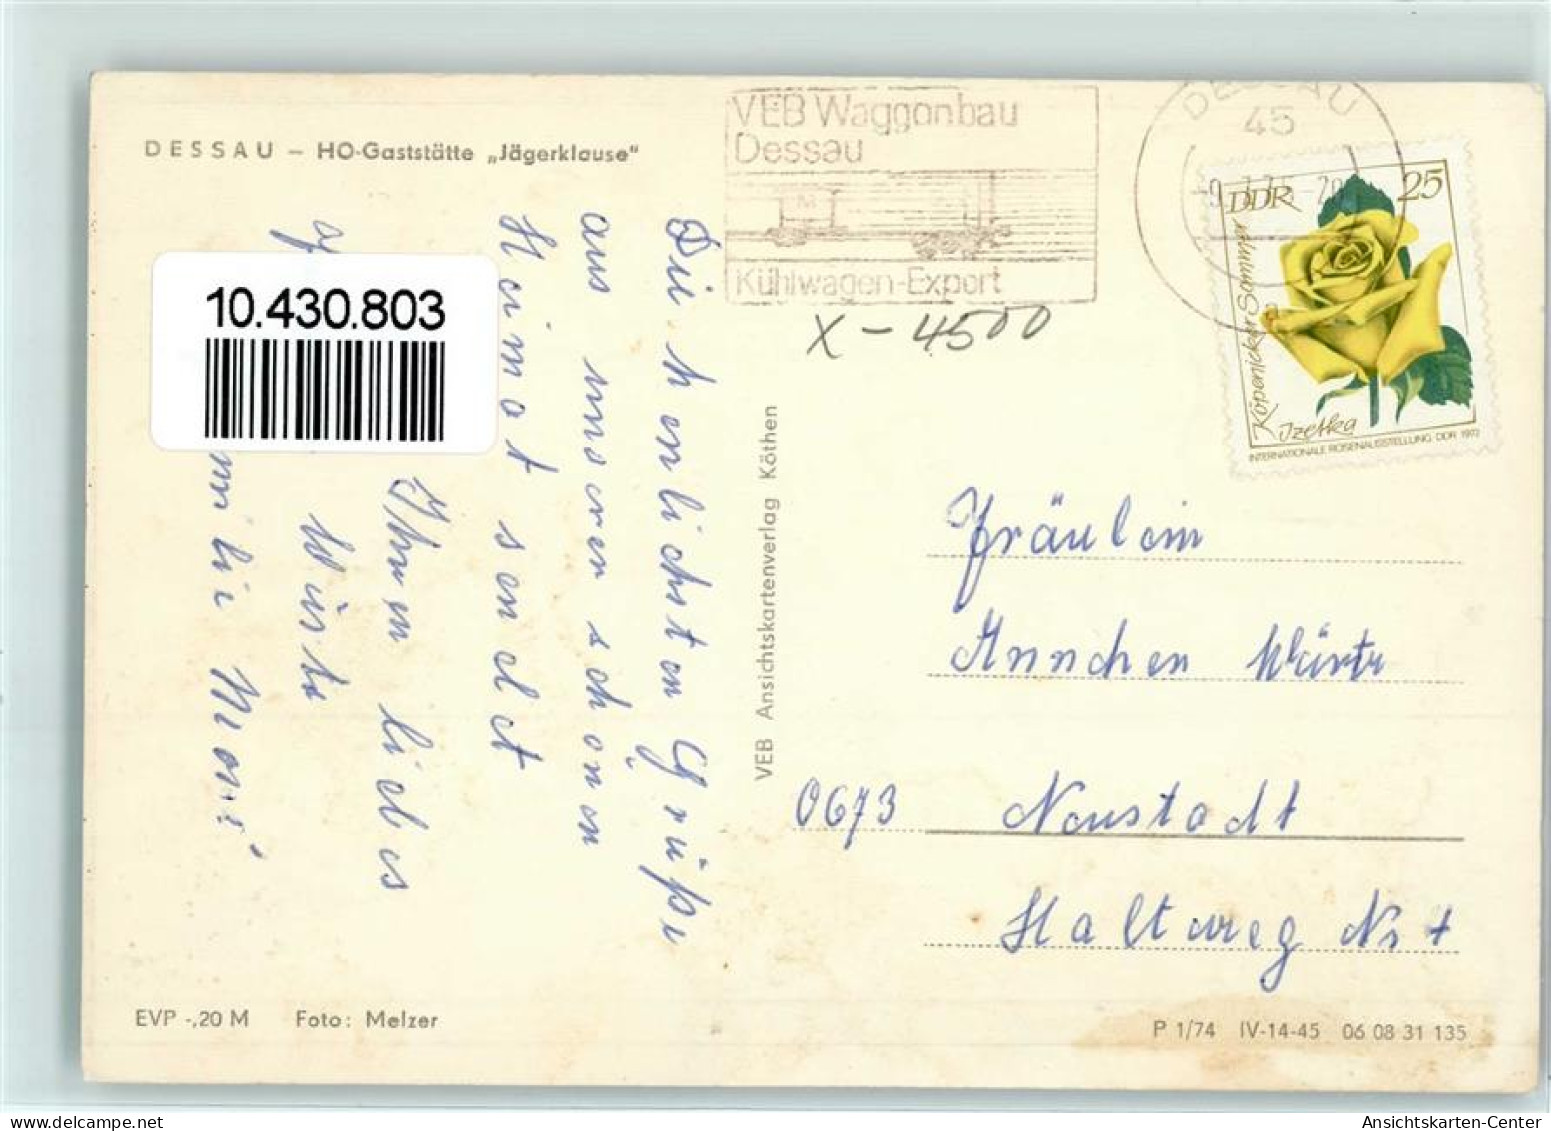 DESSAU – HO-Gaststätte „Jägerklause"
VEB Waggonbau
Dessau
Kühlwagen-Export
DESSAU
45
X – 4500
DDR 25
Köpenicker Sommer
Izetka
INTERNATIONALE ROSENAUSSTELLUNG DDR 1972
10.430.803
Die herzlichsten Grüße
aus unserer schönen
Heimat sendet
Ihnen liebes
VEB Ansichtskartenverlag Köthen
Fräulein
Ännchen
0673 Neustadt
Haltweg Nr
EVP -,20 M Foto: Melzer
P 1/74 IV-14-45 06 08 31 135
Ansichtskarten-Center